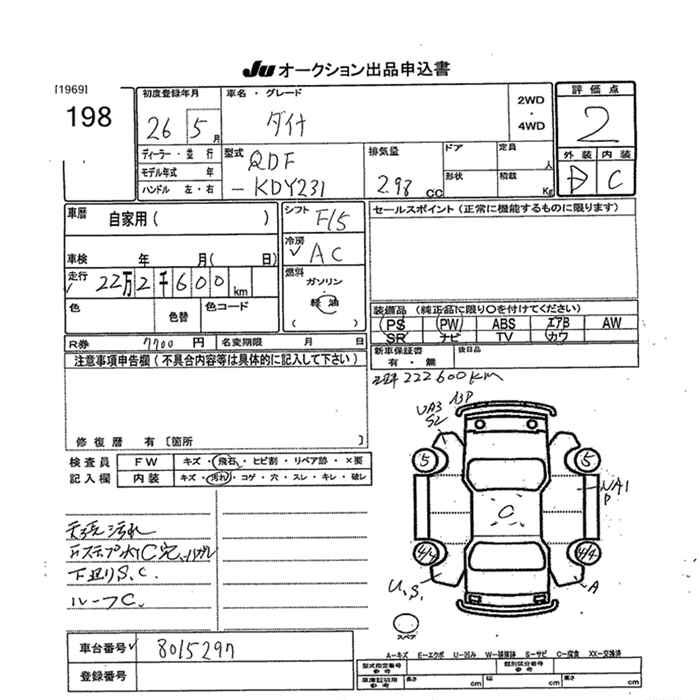 Ju オークション出品申込書
[1969]
198
初度登録年月
26 5 月
車名・グレード
ダイナ
2WD
・
4WD
評価点
2
ディーラー・並行
モデル年式 年
ハンドル 左・右
型式
QDF
-KDY231
排気量
2.98 CC
ドア
定員
人
形状
積載
Kg
外装 内装
D C
車歴
自家用( )
シフト
F15
セールスポイント(正常に機能するものに限ります)
車検 年 月( 日)
冷房
AC
走行
22万2千600km
燃料
ガソリン
軽油
( )
色
色替
色コード
装備品(純正品に限り○を付けてください)
PS PW ABS エアB AW
SR ナビ TV カワ
R券 7700 円
名変期限 月 日
新車保証書
有・無
後日品
注意事項申告欄(不具合内容等は具体的に記入して下さい)
222600km
修復歴 有[箇所 ]
検査員
記入欄
FW キズ・飛石・ヒビ割・リペア跡・×要
内装 キズ・汚れ・コゲ・穴・スレ・キレ・破レ
UA3
S2
A3P
5 5
UA1
P
C
4/4 4/4
U.S.
A
汚れ
下廻りS.C.
ルーフC.
スペア
車台番号 8015297
登録番号
A−キズ E−エクボ U−凹み W−補修跡 S−サビ C−腐食 XX−交換済
型式指定番号
参考
類別区分番号
参考
車庫証明用
参考
長さ cm 幅 cm 高さ cm